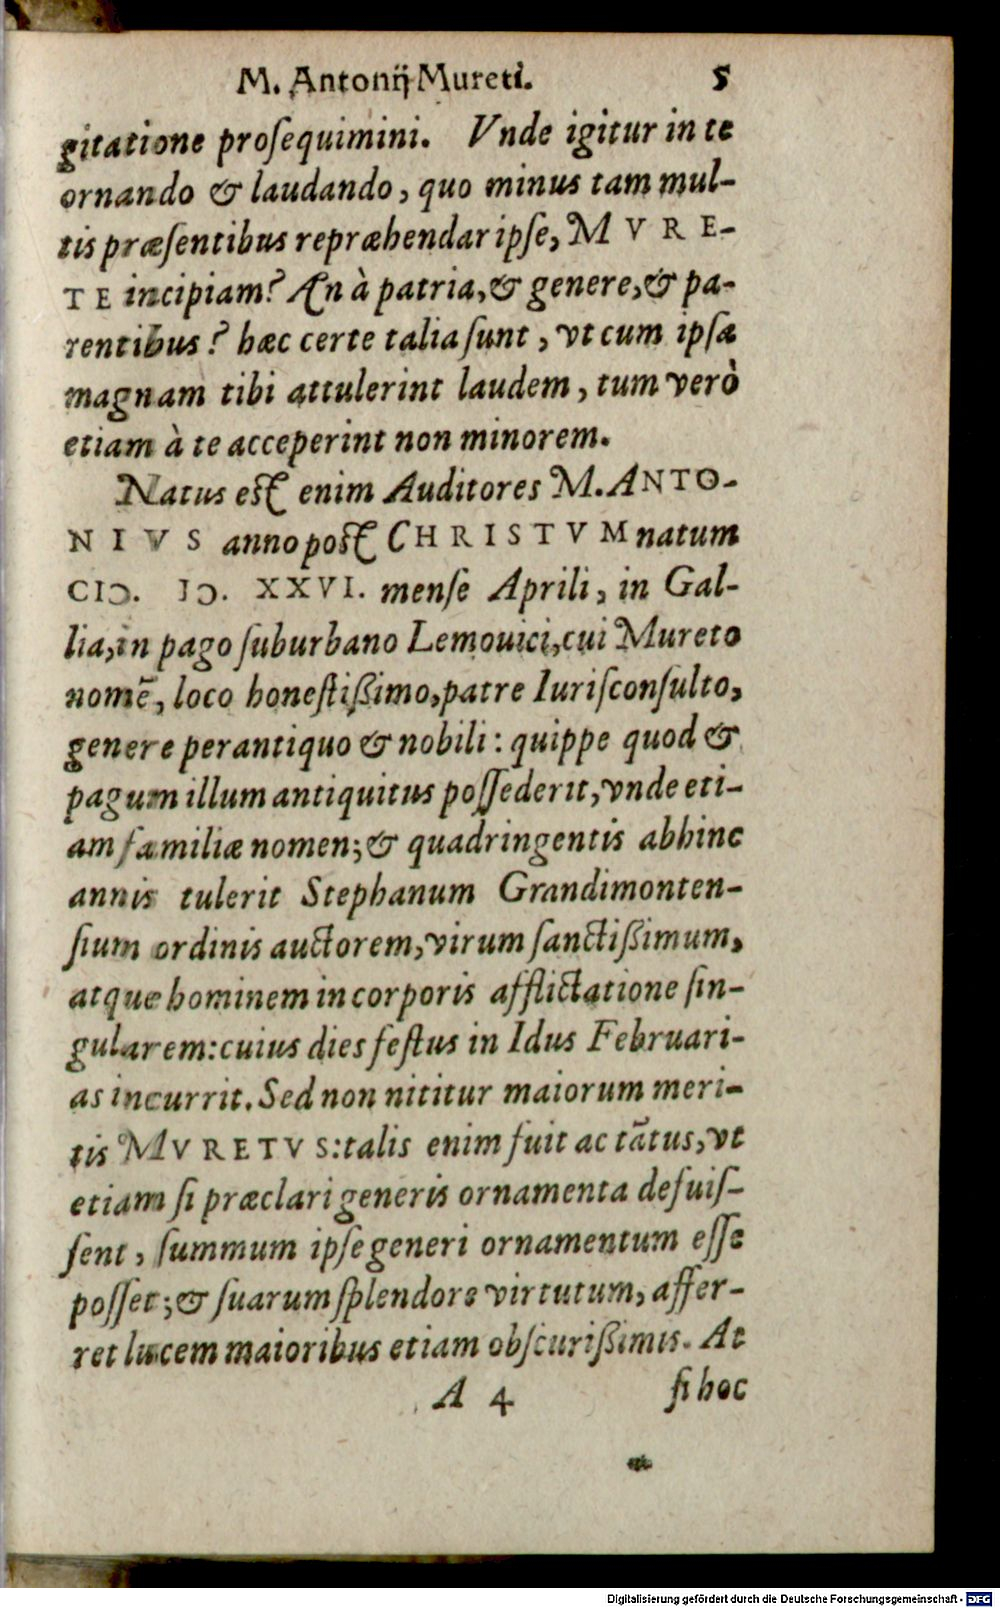 M. Antonij Mureti. 5
gitatione proſequimini. Vnde igitur in te
ornando & laudando, quo minus tam mul-
tis præſentibus repræhendar ipſe, MVRE-
TE incipiam? An à patria, & genere, & pa-
rentibus? hæc certe talia ſunt, vt cum ipſa
magnam tibi attulerint laudem, tum verò
etiam à te acceperint non minorem.
Natus eſt enim Auditores M. ANTO-
NIVS anno poſt CHRISTVM natum
CIↃ. IↃ. XXVI. menſe Aprili, in Gal-
lia, in pago ſuburbano Lemouici, cui Mureto
nomē, loco honeſtiſsimo, patre Iuriſconſulto,
genere perantiquo & nobili: quippe quod &
pagum illum antiquitus poſſederit, vnde eti-
am familiæ nomen; & quadringentis abhinc
annis tulerit Stephanum Grandimonten-
ſium ordinis auctorem, virum ſanctiſsimum,
atque hominem in corporis afflictatione ſin-
gularem: cuius dies feſtus in Idus Februari-
as incurrit. Sed non nititur maiorum meri-
tis MVRETVS: talis enim fuit ac tātus, vt
etiam ſi præclari generis ornamenta defuiſ-
ſent, ſummum ipſe generi ornamentum eſſe
poſſet; & ſuarum ſplendore virtutum, affer-
ret lucem maioribus etiam obſcuriſsimis. At
A 4 ſi hoc
Digitalisierung gefördert durch die Deutsche Forschungsgemeinschaft - DFG